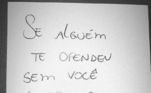 SE ALGUÉM
TE OFENDEU
SEM VOCÊ